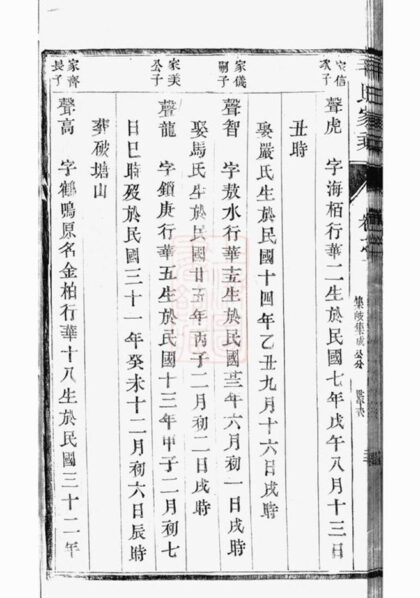 家信
次子
聲虎 字海栢行華二生於民國七年戊午八月十三日
丑時
娶嚴氏生於民國十四年乙丑九月十六日戌時
家儀
嗣子
聲智 字敖水行華十五生於民國二十三年六月初一日戌時
娶馬氏生於民國廿五年丙子二月初二日戌時
家美
公子
聲龍 字鎖庚行華五生於民國十三年甲子二月初七
日巳時歿於民國三十一年癸未十二月初六日辰時
葬破塘山
家齊
長子
聲高 字鶴鳴原名金柏行華十八生於民國三十二年